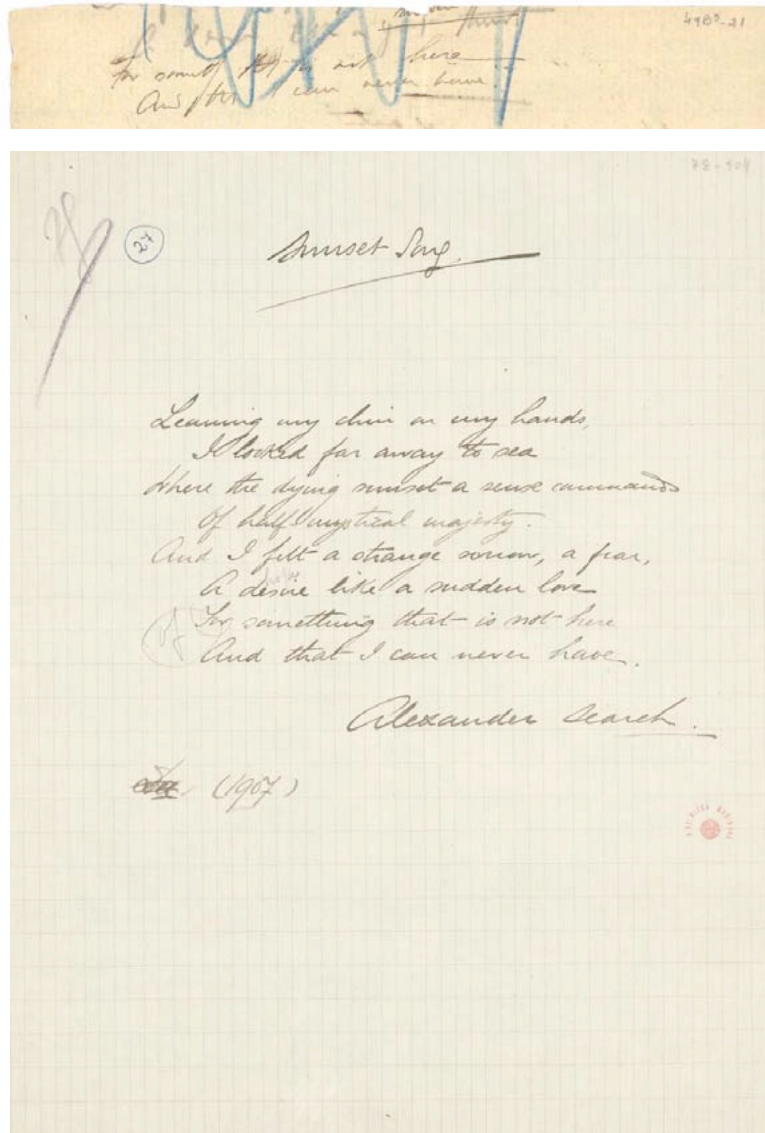 49B⁵-21
For somet[hing] that is not here
And that I can never have.
78-104
27
Sunset Song.
Leaning my chin on my hands,
I looked far away to sea
Where the dying sunset a sense commands
Of half-mystical majesty.
And I felt a strange sorrow, a fear,
A desire like a sudden love
For something that is not here
And that I can never have.
Alexander Search.
(1907)